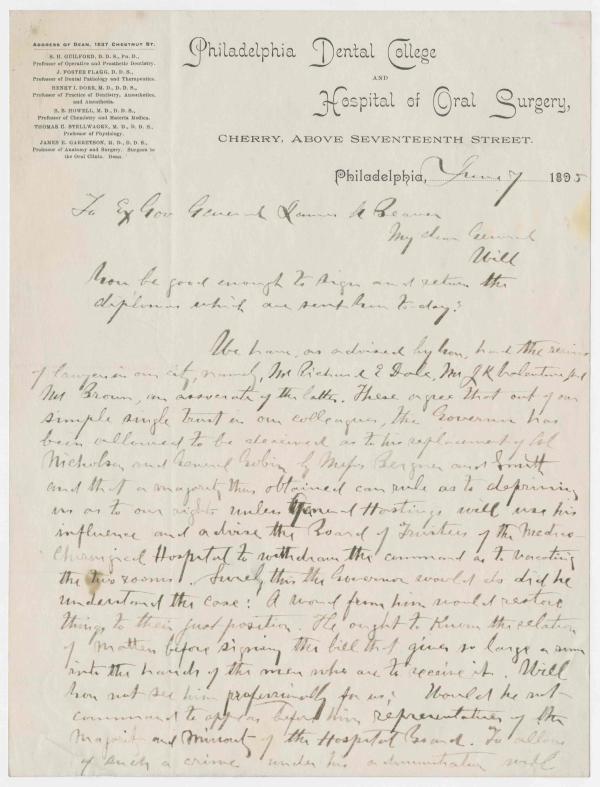 ADDRESS OF DEAN, 1527 CHESTNUT ST.
S. H. GUILFORD, D. D. S., PH. D.,
Professor of Operative and Prosthetic Dentistry.
J. FOSTER FLAGG, D. D. S.,
Professor of Dental Pathology and Therapeutics.
HENRY I. DORR, M. D., D. D. S.,
Professor of Practice of Dentistry, Anæsthetics,
and Anæsthesia.
S. B. HOWELL, M. D., D. D. S.,
Professor of Chemistry and Materia Medica.
THOMAS C. STELLWAGEN, M. D., D. D. S.,
Professor of Physiology.
JAMES E. GARRETSON, M. D., D. D. S.,
Professor of Anatomy and Surgery. Surgeon to
the Oral Clinic. Dean.
Philadelphia Dental College
AND
Hospital of Oral Surgery,
CHERRY, ABOVE SEVENTEENTH STREET.
Philadelphia, June 7 1895
To Ex Gov General James A Beaver
My dear General
Will
you be good enough to sign and return the
diplomas which are sent you to-day?
We have, as advised by you, had the
of lawyers in our city, namely, Mr Richard E Dale, Mr J K Valentine and
Mr Brown, an associate of the latter. These agree that out of our
simple single trust in our colleagues, the Governor has
been allowed to be deceived as to his replacement of Col
Nicholson and General Gobin by Messrs Bergner and Smith
and that a majority thus obtained can rule as to depriving
us as to our rights unless General Hastings will use his
influence and advise the Board of Trustees of the Medico-
Chirurgical Hospital to withdraw the command as to vacating
the two rooms. Surely this the Governor would do did he
understand the case! A word from him would restore
things to their just position. He ought to know the relation
of matters before signing the bill that gives so large a sum
into the hands of the men who are to receive it. Will
you not see him professionally for us? Would he not
command to appear before him representatives of the
Majority and Minority of the Hospital Board. To allow
of such a crime under his administration will